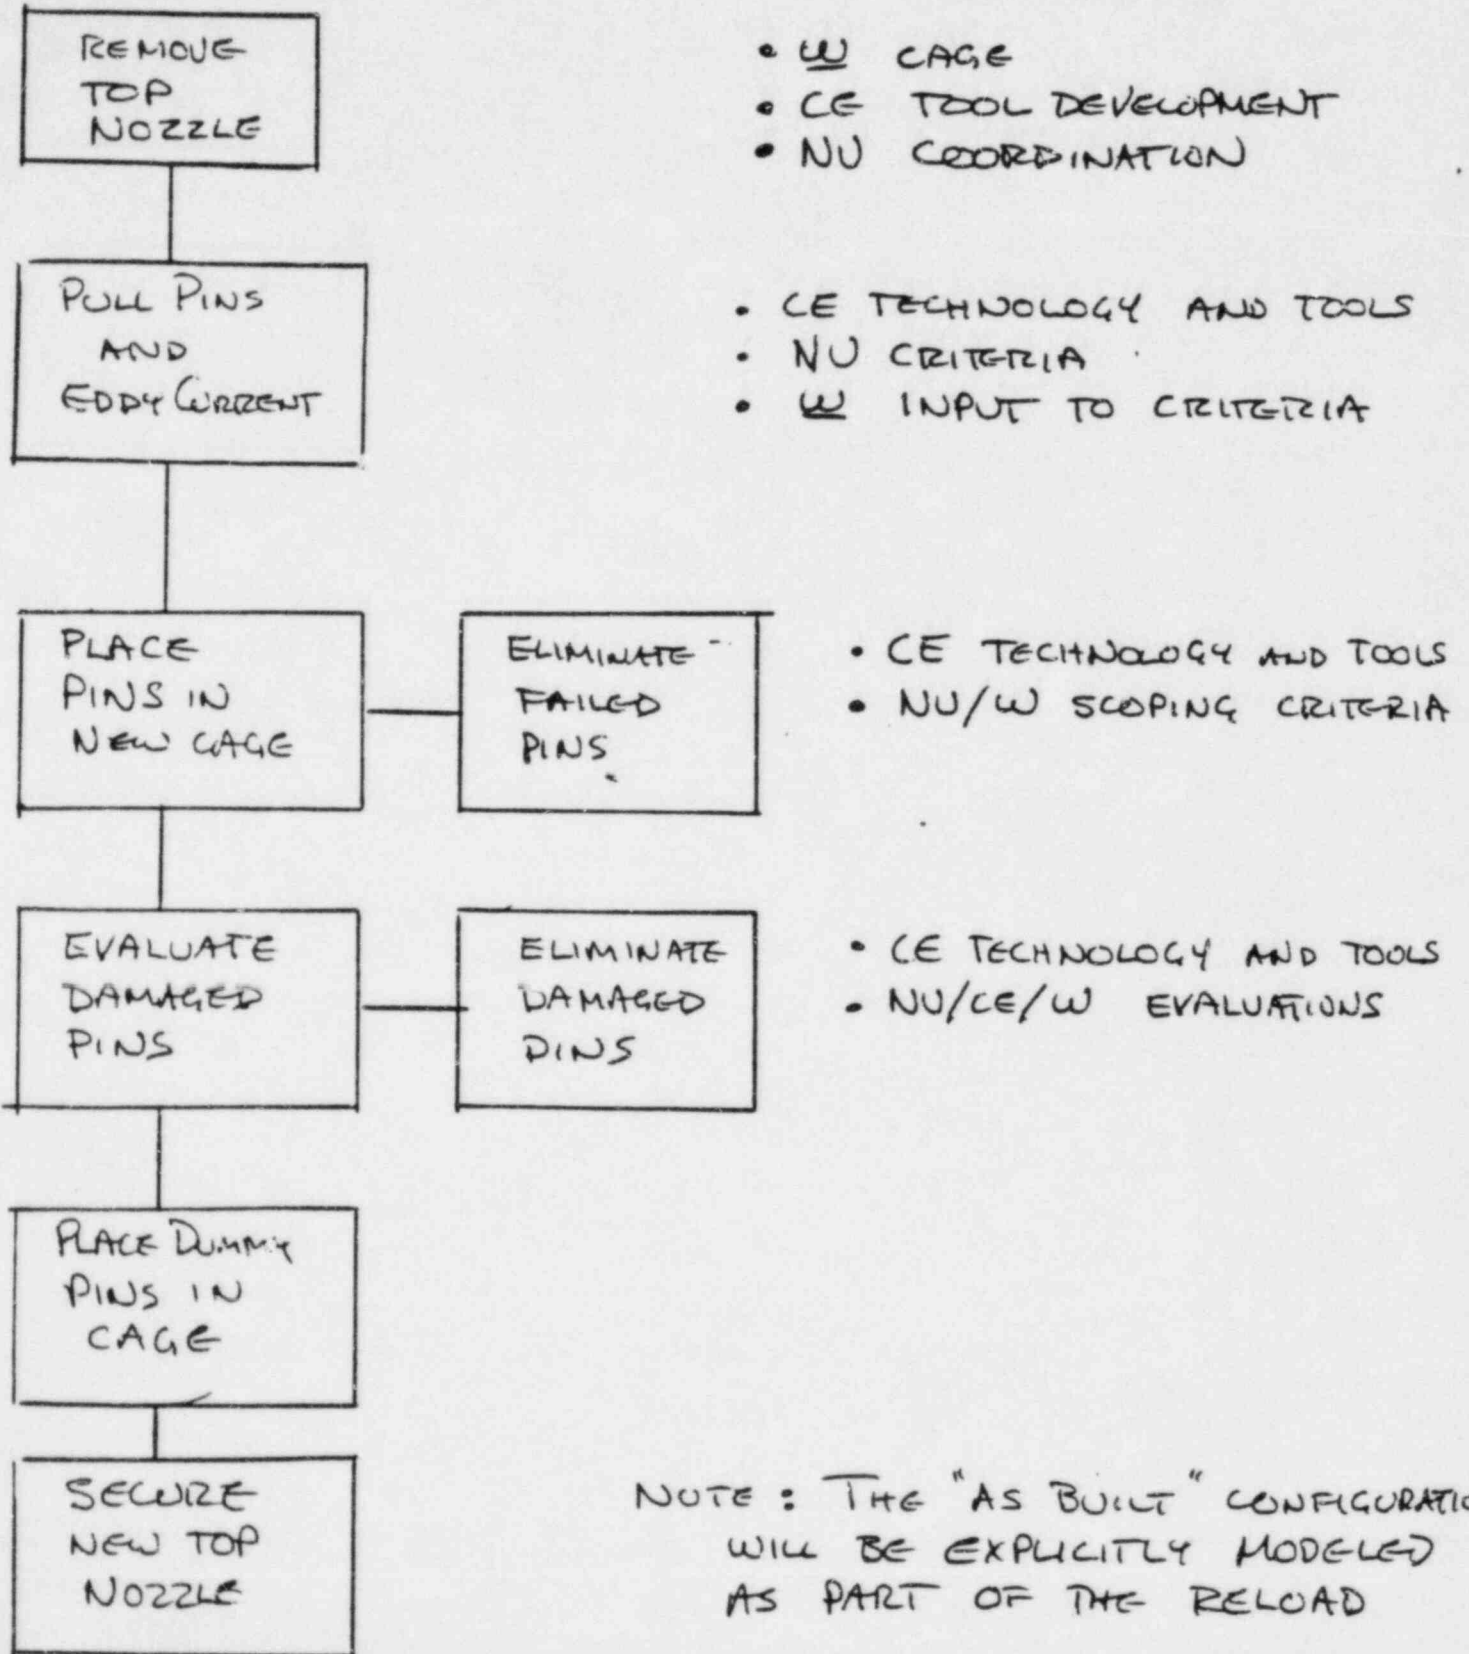 REMOVE
TOP
NOZZLE
• W CAGE
• CE TOOL DEVELOPMENT
• NU COORDINATION
PULL PINS
AND
EDDY CURRENT
• CE TECHNOLOGY AND TOOLS
• NU CRITERIA
• W INPUT TO CRITERIA
PLACE
PINS IN
NEW CAGE
ELIMINATE
FAILED
PINS
• CE TECHNOLOGY AND TOOLS
• NU/W SCOPING CRITERIA
EVALUATE
DAMAGED
PINS
ELIMINATE
DAMAGED
PINS
• CE TECHNOLOGY AND TOOLS
• NU/CE/W EVALUATIONS
PLACE DUMMY
PINS IN
CAGE
SECURE
NEW TOP
NOZZLE
NOTE: THE "AS BUILT" CONFIGURATIO
WILL BE EXPLICITLY MODELED
AS PART OF THE RELOAD